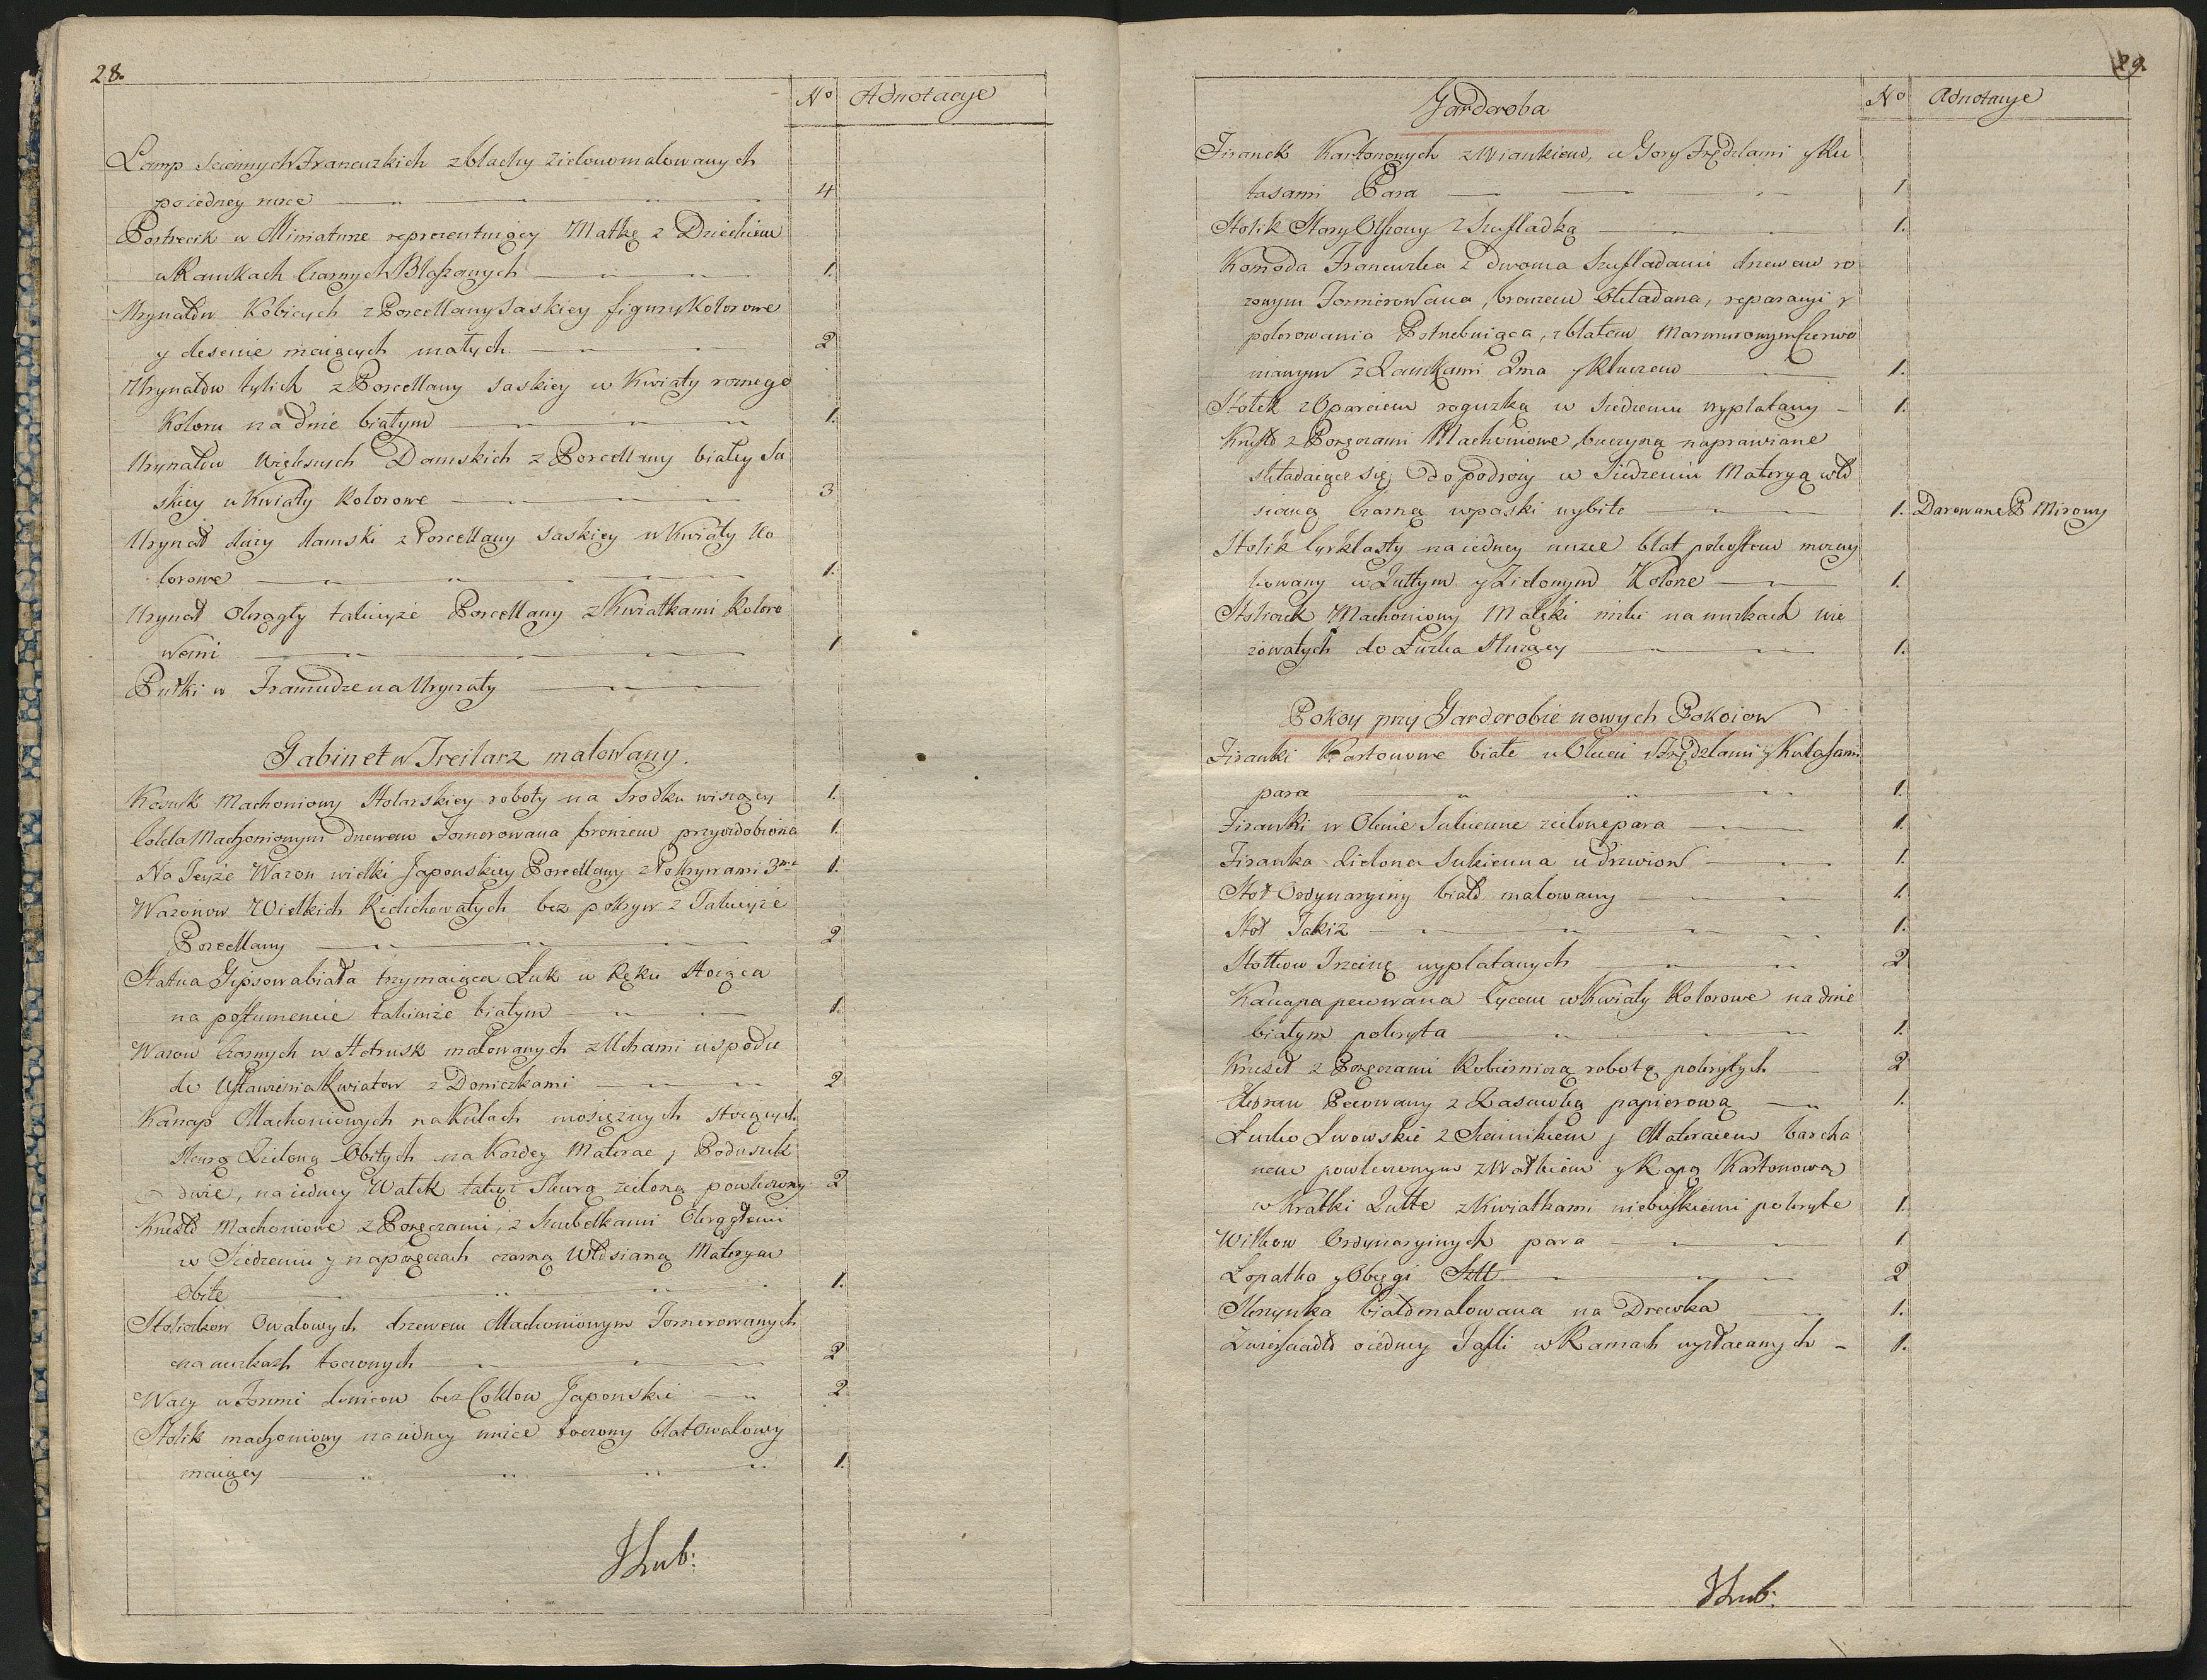 28.
No Adnotacye
Lamp sciennych Francuzkich z blachy zielono malowanych
po iedney rurce 4
Portrecik w Miniaturze reprezentuiący Matkę z Dzieckiem
w Ramkach Czarnych Blaszanych 1.
Urynałów Kobicych z Porcellany Saskiey figury Kolorowe
y desenie maiących małych 2
Urynałów tylich z Porcellany saskiey w Kwiaty rożnego
Koloru na dnie białym 1.
Urynałów większych Damskich z Porcellany białey Sa
skiey w Kwiaty Kolorowe 3
Urynał duży damski z Porcellany saskiey w Kwiaty Ko
lorowe 1.
Urynał okrągły takieyże Porcellany z Kwiatkami Koloro
wemi 1
Pułki w Framudze na Urynały
Gabinet w Treilarz malowany.
Koszuk Machoniowy Stolarskiey roboty na Srodku wiszący 1.
Machoniowym drzewem Fornerowana bronzem przyozdobiona 1.
Na Teyże Wazon wielki Japonskiey Porcellany z Pokrywami 1.
Wazonow Wielkich Kielichowatych bez pokryw z Takieyże
Porcellany 2
Statua Gipsowa biała trzymaiąca Łuk w Ręku stoiąca
na postumencie takimże białym 1.
Wazow Czarnych w Hetrusk malowanych z Uchami u spodu
do Ustawienia Kwiatow z Doniczkami 2
Kanap Machoniowych na Kulach mosięznych stoiących
Skurą Zieloną Obitych na Kożdey Materac, Poduszek
dwie, na iedney Wałek takąż Skurą zieloną powleczony 2
Krzesło Machoniowe z Poręczami, z Szubelkami Okrągłemi
w Siedzeniu y na poręczach czarną Włosianą Materyą
Obite 1.
Stolikow Owalowych drzewem Machoniowym Fornerowanych
na nuzkach toczonych 2
Wazy w Formie donicow bez Japonskie 2
Stolik machoniowy na iedney nuzce toczony blat Owalowy
maiący 1.
JLub:
29.
Garderoba No Adnotacye
Firanek Kartonowych z Wiankiem, u Gory Frędzlami y Ku
tasami Para 1
Stolik Stary Olszowy z Szufladką 1.
Komoda Francuzka z dwoma Szufladami drzewem ro
żonym Fornerowana, bronzem Okładana, reparacyi y
polorowania Potrzebuiąca, z blatem Marmurowym Czerwo
nianym z Zamkami 2ma y Kluczem 1.
Stołek z Oparciem roguzką w Siedzeniu wyplatany 1.
Krzesło z Poręczami Machoniowe buczyną naprawiane
składaiące się do podroży w Siedzeniu Materyą wło
sianą Czarną w paski wybite 1. Darowane P Mirowy
Stolik Cyrklasty na iedney nuzce blat pokostem
kowany w Żułtym y Zielonym Kolorze 1.
Stoliczek Machoniowy Maleki nizki na nuzkach wie
zowatych do Łuzka Słuzący 1.
Pokoy przy Garderobie nowych Pokoiow
Firanki Kartonowe białe u Okien z Frędzlami y Kutasami
para 1.
Firanki w Oknie Sukienne zielone para 1.
Firanka Zielona Sukienna u drzwiow 1.
Stoł Ordynaryiny biało malowany 1.
Stoł Takiż 1.
Stołkow Trzciną wyplatanych 2
Kanapa pecowana Cycem w Kwiaty Kolorowe na dnie
białym pokryta 1.
Krzeseł z Poręczami Kobiernicza robotą pokrytych 2
Ekran Pecowany z Zasuwką papierową 1.
Łuzko Lwowskie z Siennikiem y Materacem barcha
nem powleczonym z Wałkiem y Kapą Kartonową
w Kratki Żułte z Kwiatkami niebieskiemi pokryte 1.
Wilkow Ordynaryinych para 1
Łopatka y Obcęgi Sztl 2
Skrzynka biało malowana na Drewka 1.
Zwierściadło o iedney Tafli w Ramach wyzłacanych 1.
JLub: